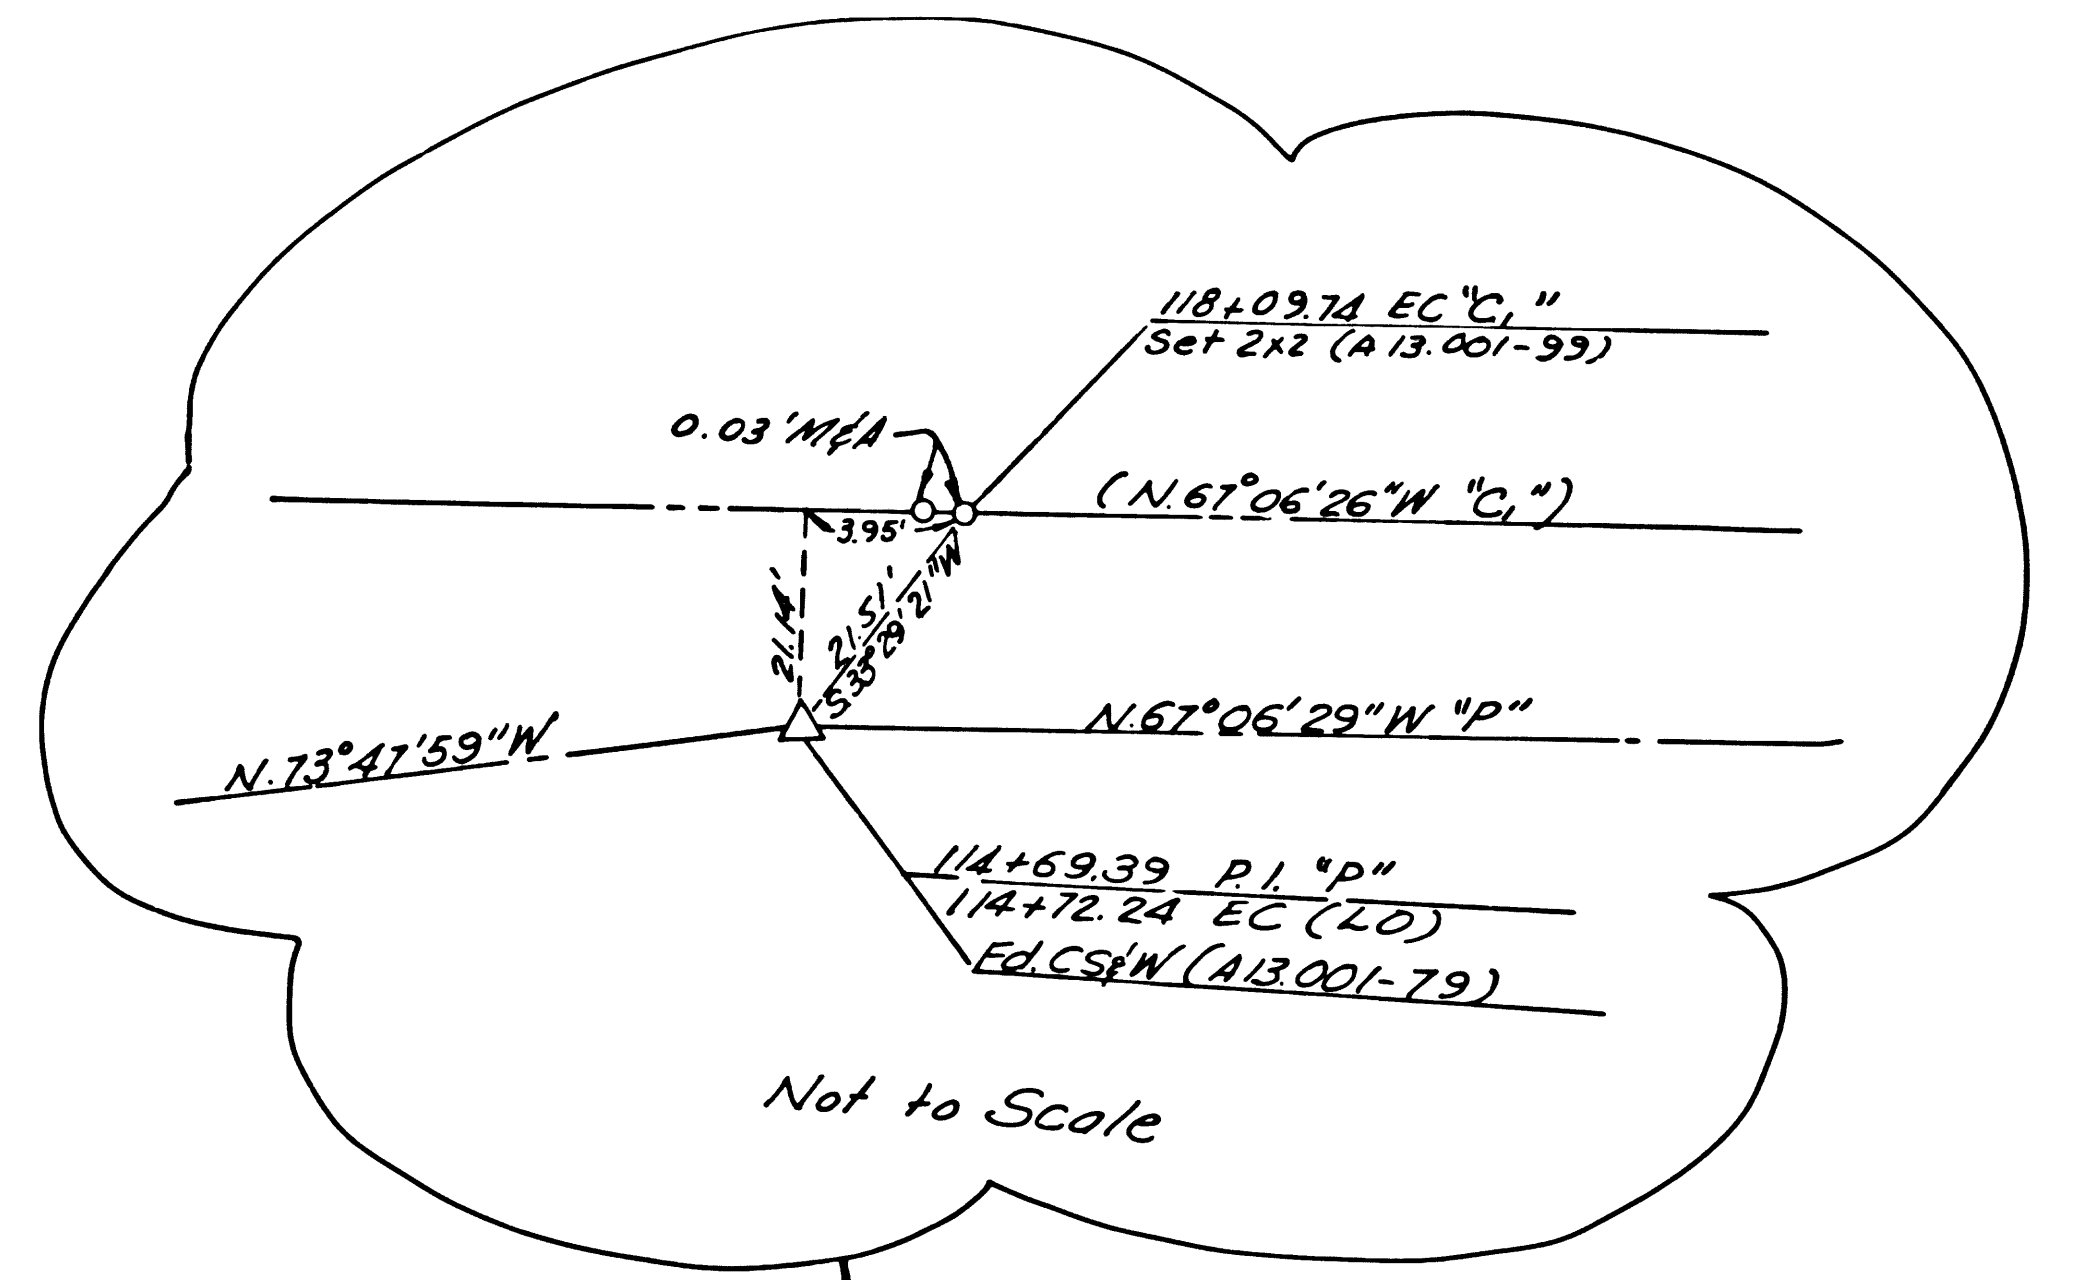 118+09.74 EC "C₁"
Set 2x2 (A13.001-99)
0.03' M&A
(N.67°06'26"W "C₁")
3.95'
21.14'
21.51'
S.33°29'21"W
N.67°06'29"W "P"
N.73°47'59"W
114+69.39 P.I. "P"
114+72.24 EC (LO)
Fd. CS&W (A13.001-79)
Not to Scale